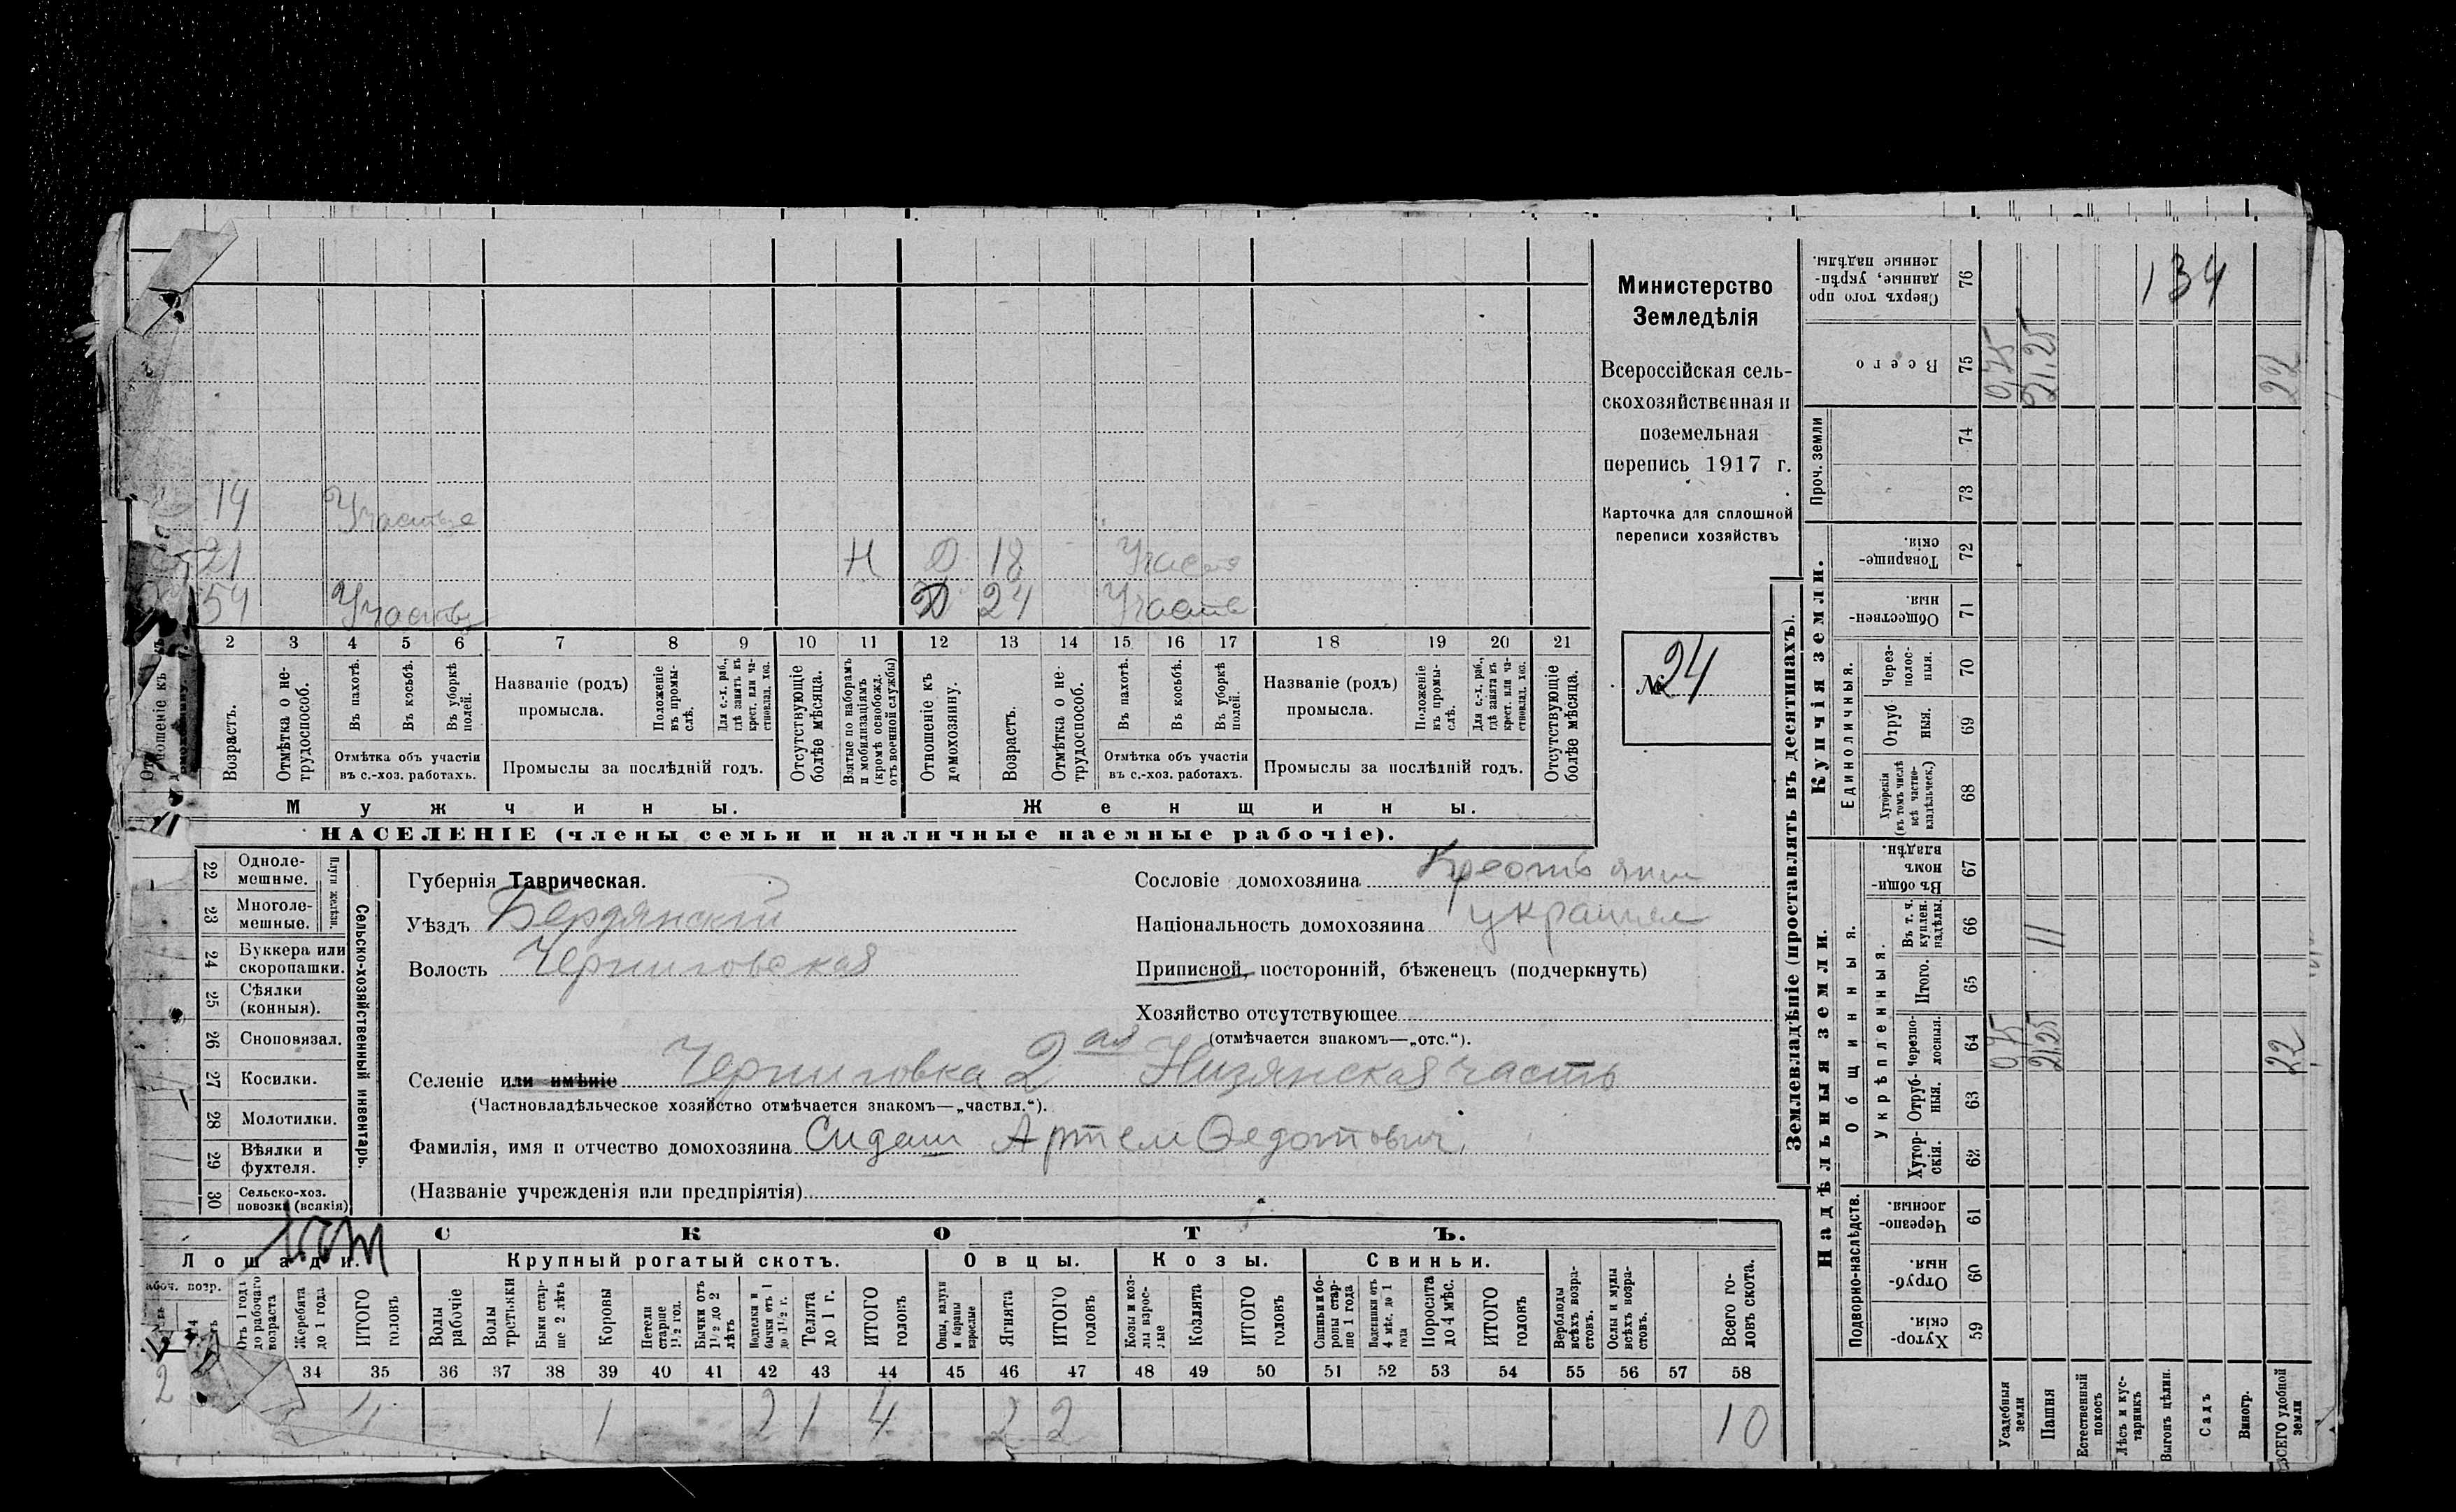 14 Участвуе
21 Н Д 18 Участв
54 Участву Д 24 Участв
2 3 4 5 6 7 8 9 10 11 12 13 14 15 16 17 18 19 20 21
Отношеніе къ
Возрастъ.
Отмѣтка о не-
трудоспособ.
Въ пахотѣ.
Въ косьбѣ.
Въ уборкѣ
полей.
Отмѣтка объ участіи
въ с.-хоз. работахъ.
Названіе (родъ)
промысла.
Положеніе
въ промы-
слѣ.
Для с.-х. раб.,
гдѣ занятъ въ
крест. или ча-
стновлад. хоз.
Промыслы за послѣдній годъ.
Отсутствующіе
болѣе мѣсяца.
Взятые по наборамъ
и мобилизаціямъ
(кромѣ освобожд.
отъ военной службы)
Отношеніе къ
домохозяину.
Возрастъ.
Отмѣтка о не-
трудоспособ.
Въ пахотѣ.
Въ косьбѣ.
Въ уборкѣ
полей.
Отмѣтка объ участіи
въ с.-хоз. работахъ.
Названіе (родъ)
промысла.
Положеніе
въ промы-
слѣ.
Для с.-х. раб.,
гдѣ занята въ
крест. или ча-
стновлад. хоз.
Промыслы за послѣдній годъ.
Отсутствующіе
болѣе мѣсяца.
Мужчины.
Женщины.
НАСЕЛЕНІЕ (члены семьи и наличные наемные рабочіе).
Министерство
Земледѣлія
Всероссійская сель-
скохозяйственная и
поземельная
перепись 1917 г.
Карточка для сплошной
переписи хозяйствъ
№ 24
22 Одноле-
мешные.
23 Многоле-
мешные.
Плуги желѣзн.
24 Буккера или
скоропашки.
25 Сѣялки
(конныя).
26 Сноповязал.
27 Косилки.
28 Молотилки.
29 Вѣялки и
фухтеля.
30 Сельско-хоз.
повозки (всякія)
Сельско-хозяйственный инвентарь.
Губернія Таврическая.
Уѣздъ Бердянскій
Волость Черниговская
Сословіе домохозяина Крестьянин
Національность домохозяина
Приписной, посторонній, бѣженецъ (подчеркнуть)
Хозяйство отсутствующее
(отмѣчается знакомъ—„отс.“).
Селеніе или имѣніе Черниговка 2 ая Низянская часть
(Частновладѣльческое хозяйство отмѣчается знакомъ—„частвл.“).
Фамилія, имя и отчество домохозяина Сидаш Артем Ѳедотович.
(Названіе учрежденія или предпріятія)
СКОТЪ.
Лошади.
Крупный рогатый скотъ.
Овцы.
Козы.
Свиньи.
Отъ 1 года
до рабочаго
возраста
Жеребята
до 1 года
ИТОГО
головъ
Волы
рабочіе
Волы
третьяки
Быки стар-
ше 2 лѣтъ
Коровы
Нетели
старше
1½ год.
Бычки отъ
1½ до 2
лѣтъ
Подтелки и
бычки отъ 1
до 1½ г.
Телята
до 1 г.
ИТОГО
головъ
Овцы, валухи
и бараны
взрослые
Ягнята
ИТОГО
головъ
Козы и коз-
лы взрос-
лые
Козлята
ИТОГО
головъ
Свиньи и бо-
ровы стар-
ше 1 года
Подсвинки отъ
4 мѣс. до 1
года
Поросята
до 4 мѣс.
ИТОГО
головъ
Верблюды
всѣхъ возра-
стовъ.
Ослы и мулы
всѣхъ возра-
стовъ.
Всего го-
ловъ скота.
34 35 36 37 38 39 40 41 42 43 44 45 46 47 48 49 50 51 52 53 54 55 56 57 58
2 1 2 1 4 2 2 10
Землевладѣніе (проставлять въ десятинахъ).
Купчія земли.
Надѣльныя земли.
Проч. земли
Сверхъ того про
данные, укрѣп-
ленные надѣлы. 76 134
Всего 75 0,75 21,25 22
74
73
Товарище-
скія. 72
Обществен-
ныя. 71
Единоличныя.
Через-
полос-
ныя. 70
Отруб
ныя. 69
Хуторскія
(въ томъ числѣ
всѣ частно-
владѣльческ.) 68
Въ общи-
номъ
владѣн. 67
Общинныя.
Укрѣпленныя.
Въ т. ч.
куплен.
надѣлы. 66 11
Итого. 65
Черезпо-
лосныя. 64 0,75 21,25 22
Отруб-
ныя. 63
Хутор-
скія. 62
Подворно-наслѣдств.
Черезпо-
лосныя. 61
Отруб-
ныя. 60
Хутор-
скія. 59
Усадебныя
земли
Пашня
Естественный
покосъ
Лѣсъ и кус-
тарникъ
Выгонъ цѣлин.
Садъ
Виногр.
ВСЕГО удобной
земли